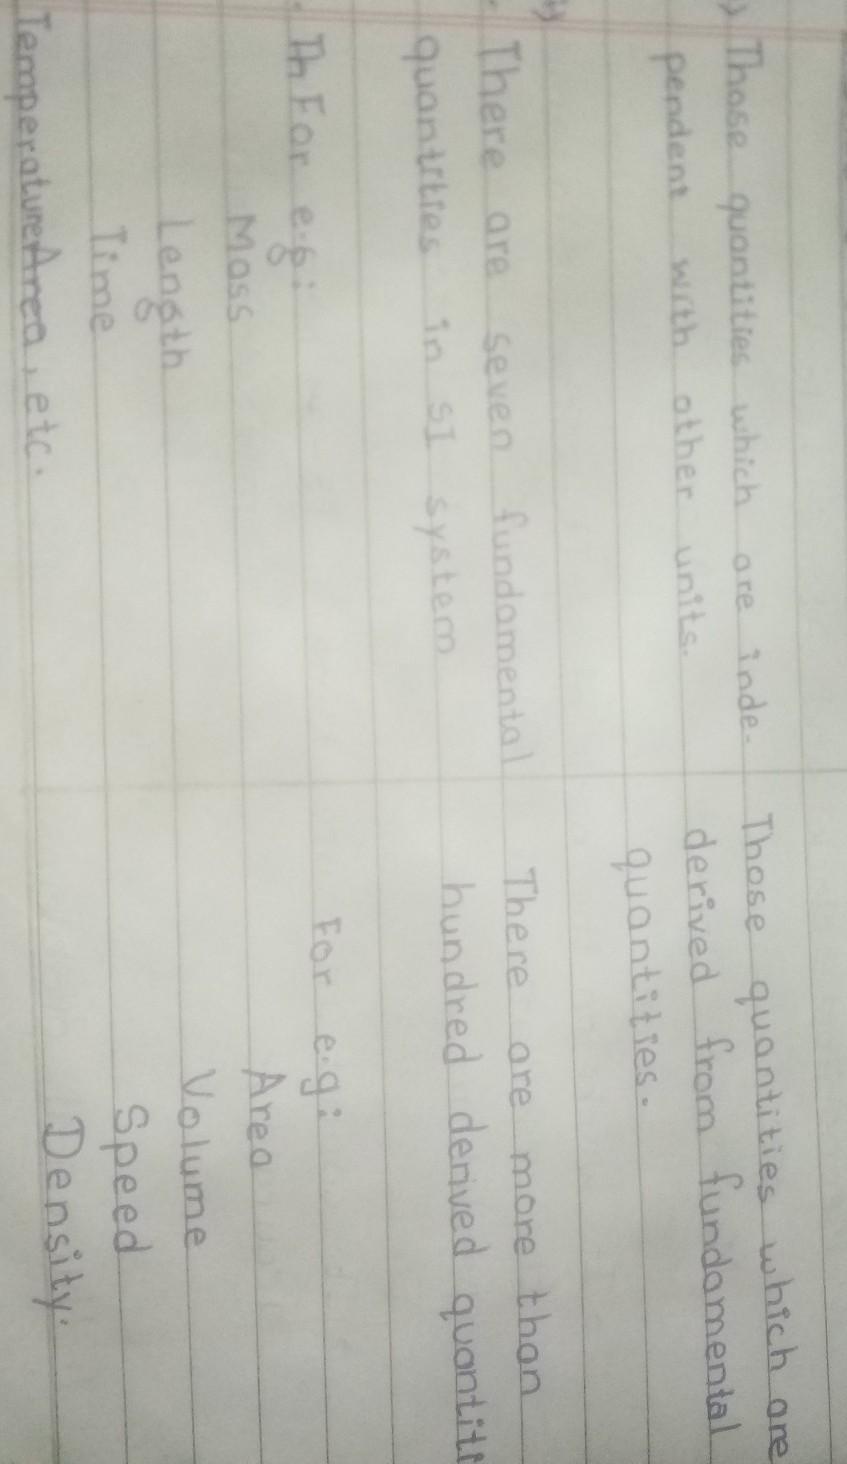 ) Those quantities which are inde-
pendent with other units.
Those quantities which are
derived from fundamental
quantities.
There are seven fundamental
quantities in SI system
There are more than
hundred derived quantiti
Th For e.g:
Mass
Length
Time
Temperature Area, etc.
For e.g:
Area
Volume
Speed
Density.